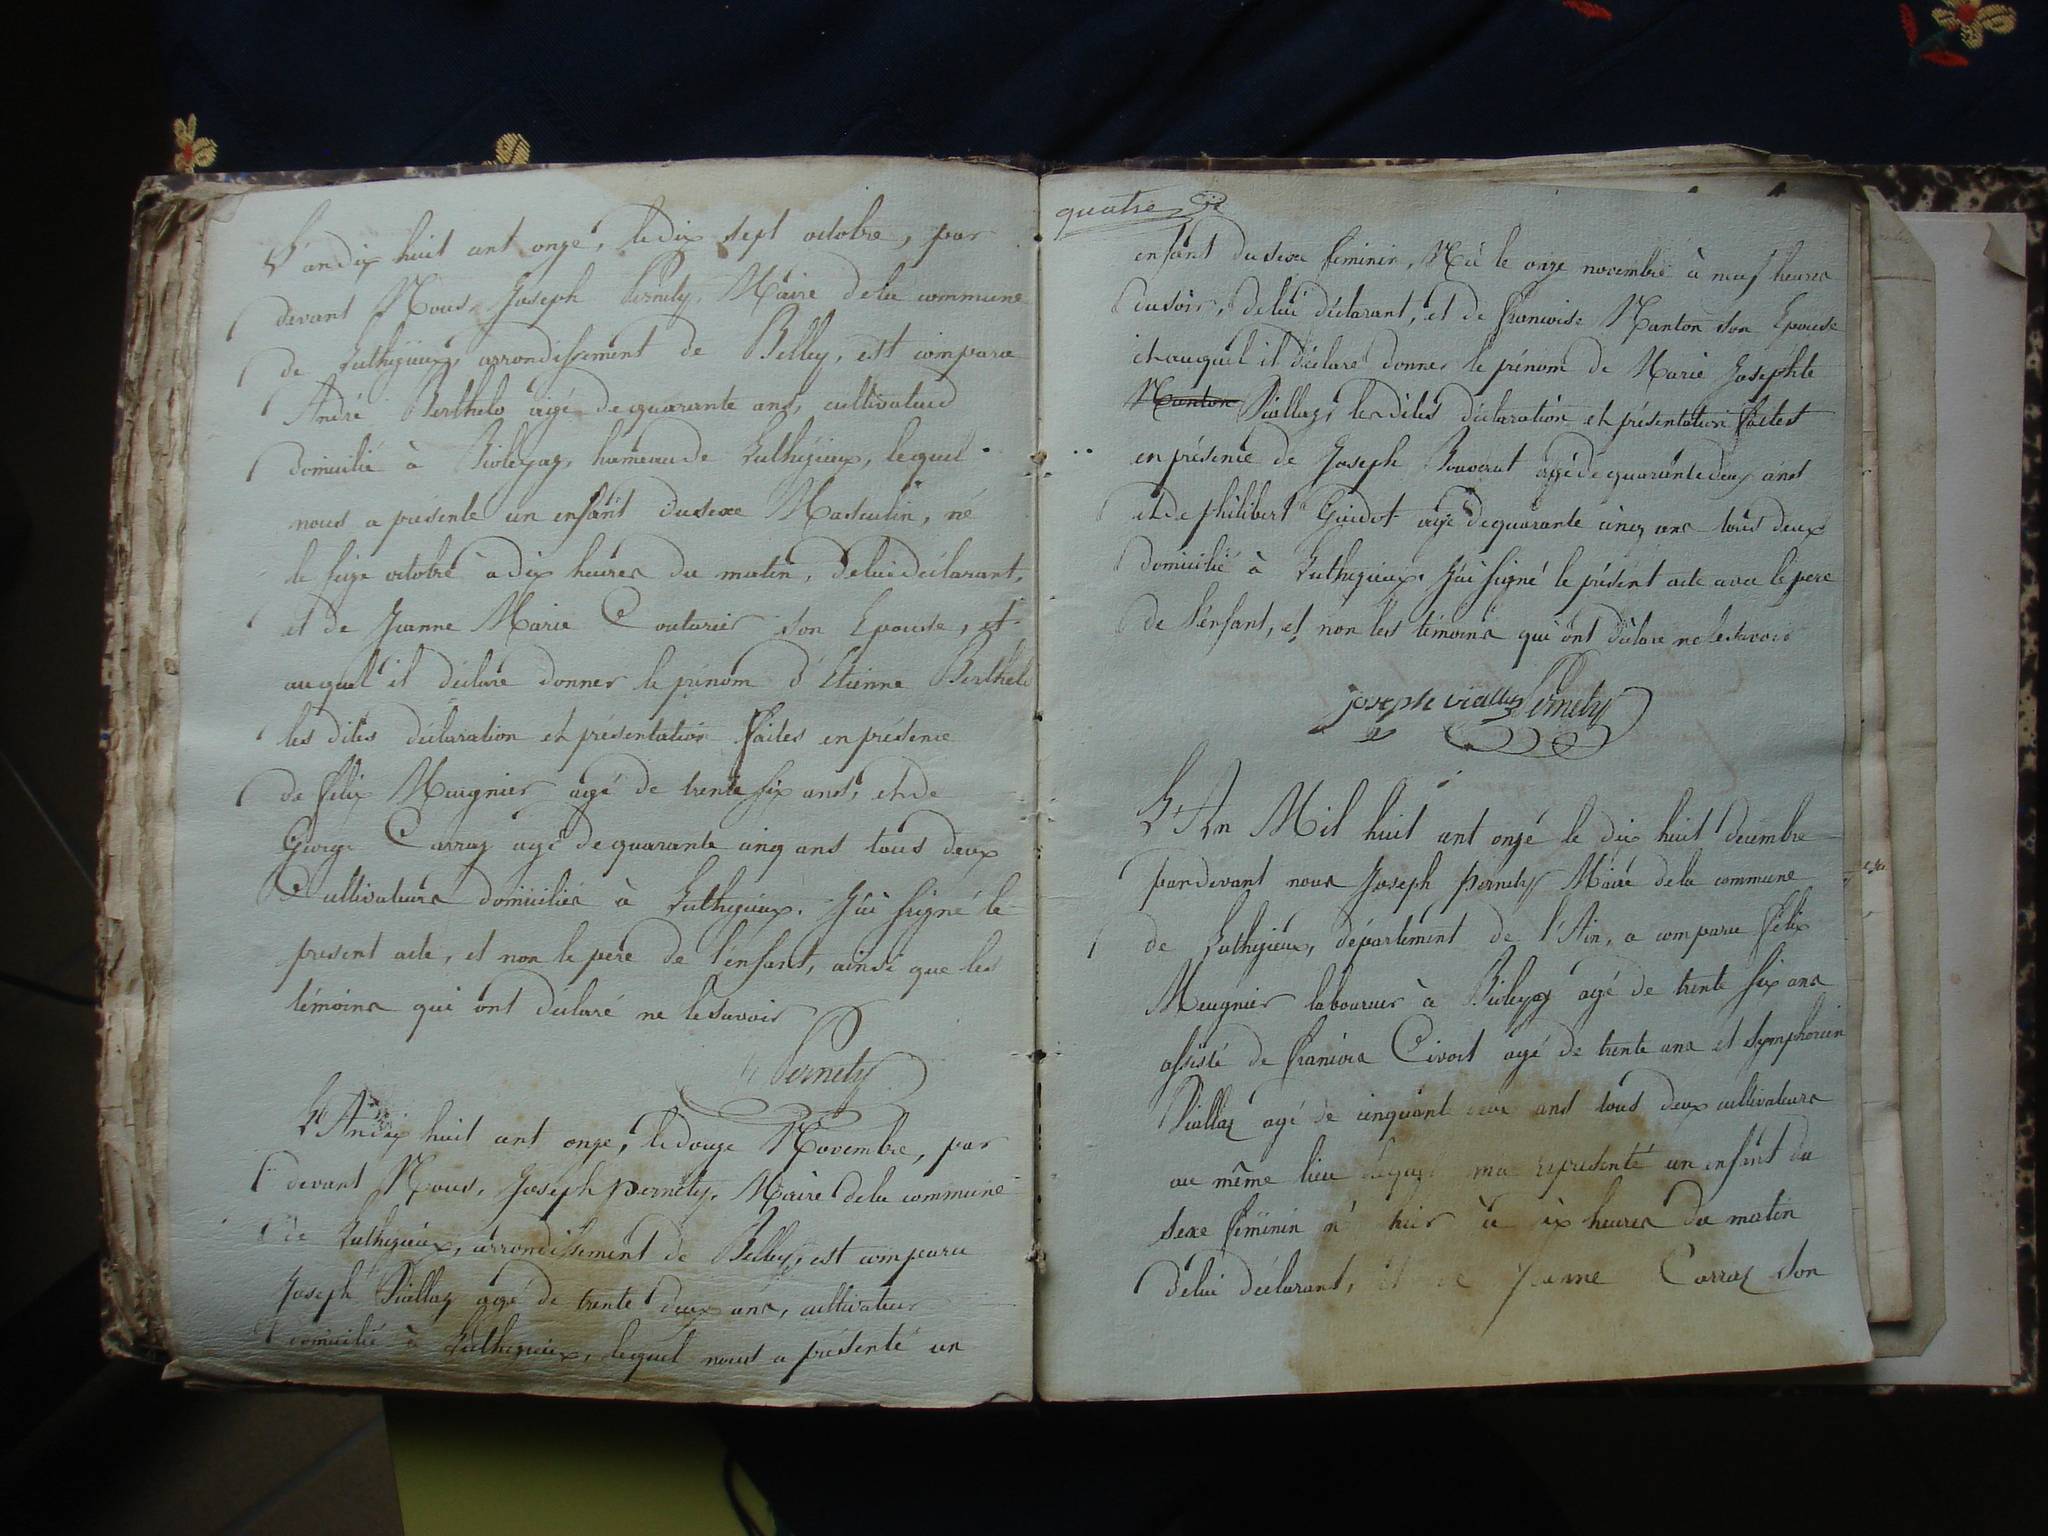 L'an dix huit cent onze, le dix sept octobre, par
devant Nous, Joseph Pernety, Maire de la commune
de Luthezieux, arrondissement de Belley, est comparu
André Berthelo agé de quarante ans, cultivateur
domicilié à Bioleyaz, hameau de Luthezieux, lequel
nous a présenté un enfant du sexe Masculin, né
le seize octobre à dix heures du matin, de lui déclarant,
et de Jeanne Marie Couturier son Epouse, et
auquel il déclare donner le prénom d'Etienne Berthelo
les dites déclaration et présentation faites en présence
de félix Meugnier agé de trente six ans, et de
George Carraz agé de quarante cinq ans tous deux
Cultivateurs domiciliés à Luthezieux. J'ai signé le
present acte, et non le pere de l'enfant, ainsi que les
témoins qui ont déclaré ne le savoir
Pernety
L'An dix huit cent onze, le douze Novembre, par
devant Nous, Joseph pernety, Maire de la commune
de Luthezieux, arrondissement de Belley, est comparu
Joseph Viallaz agé de trente deux ans, cultivateur
domicilié à Luthezieux, lequel nous a présenté un
quatre
enfant du sexe feminin, Né le onze novembre à neuf heures
du soir, de lui déclarant, et de francoise Nanton son Epouse
et auquel il déclare donner le prénom de Marie Josephte
Nanton Viallaz, les dites déclaration et présentation faites
en présence de Joseph Bouverat agé de quarante deux ans
et de philibert Guidot agé de quarante cinq ans tous deux
domicilié à Luthezieux. J'ai signé le présent acte avec le pere
de l'enfant, et non les témoins qui ont déclaré ne le savoir
joseph viallaz Pernety
L'An Mil huit cent onze le dix huit decembre
pardevant nous Joseph pernety Maire de la commune
de Luthezieux, département de l'Ain, a comparu félix
Meugnier laboureur à Bioleyaz agé de trente six ans
assisté de francois Civoct agé de trente ans et Symphorien
Viallaz agé de cinquante deux ans tous deux cultivateurs
au même lieu lequel ma représenté un enfant du
sexe féminin né hier à dix heures du matin
de lui déclarant, et de Jeanne Carraz son